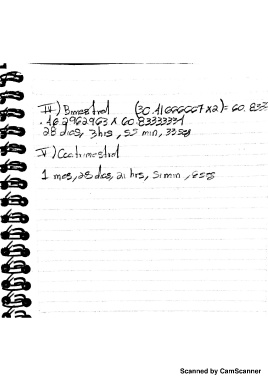 IV) Bimestral (30.41666667 x 2) = 60.833
.462962963 x 60.83333334
28 dias, 3 hrs, 55 min, 33 seg
V) Cuatrimestral
1 mes, 28 dias, 21 hrs, 51 min, 6 seg
Scanned by CamScanner